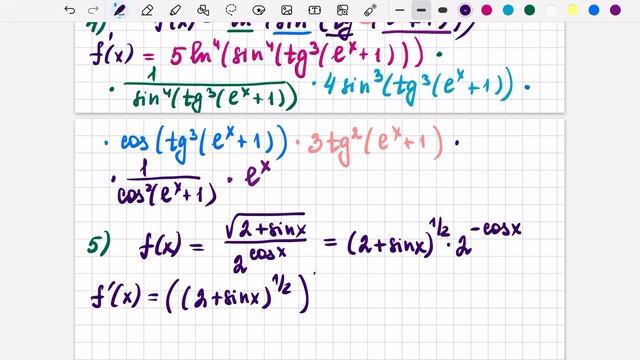 f'(x) = 5 ln⁴(sin⁴(tg³(eˣ+1))) ·
· 1/(sin⁴(tg³(eˣ+1))) · 4 sin³(tg³(eˣ+1)) ·
· cos(tg³(eˣ+1)) · 3tg²(eˣ+1) ·
· 1/(cos²(eˣ+1)) · eˣ
5) f(x) = √(2+sinx)/2^(cosx) = (2+sinx)^(1/2) · 2^(-cosx)
f'(x) = ((2+sinx)^(1/2))'